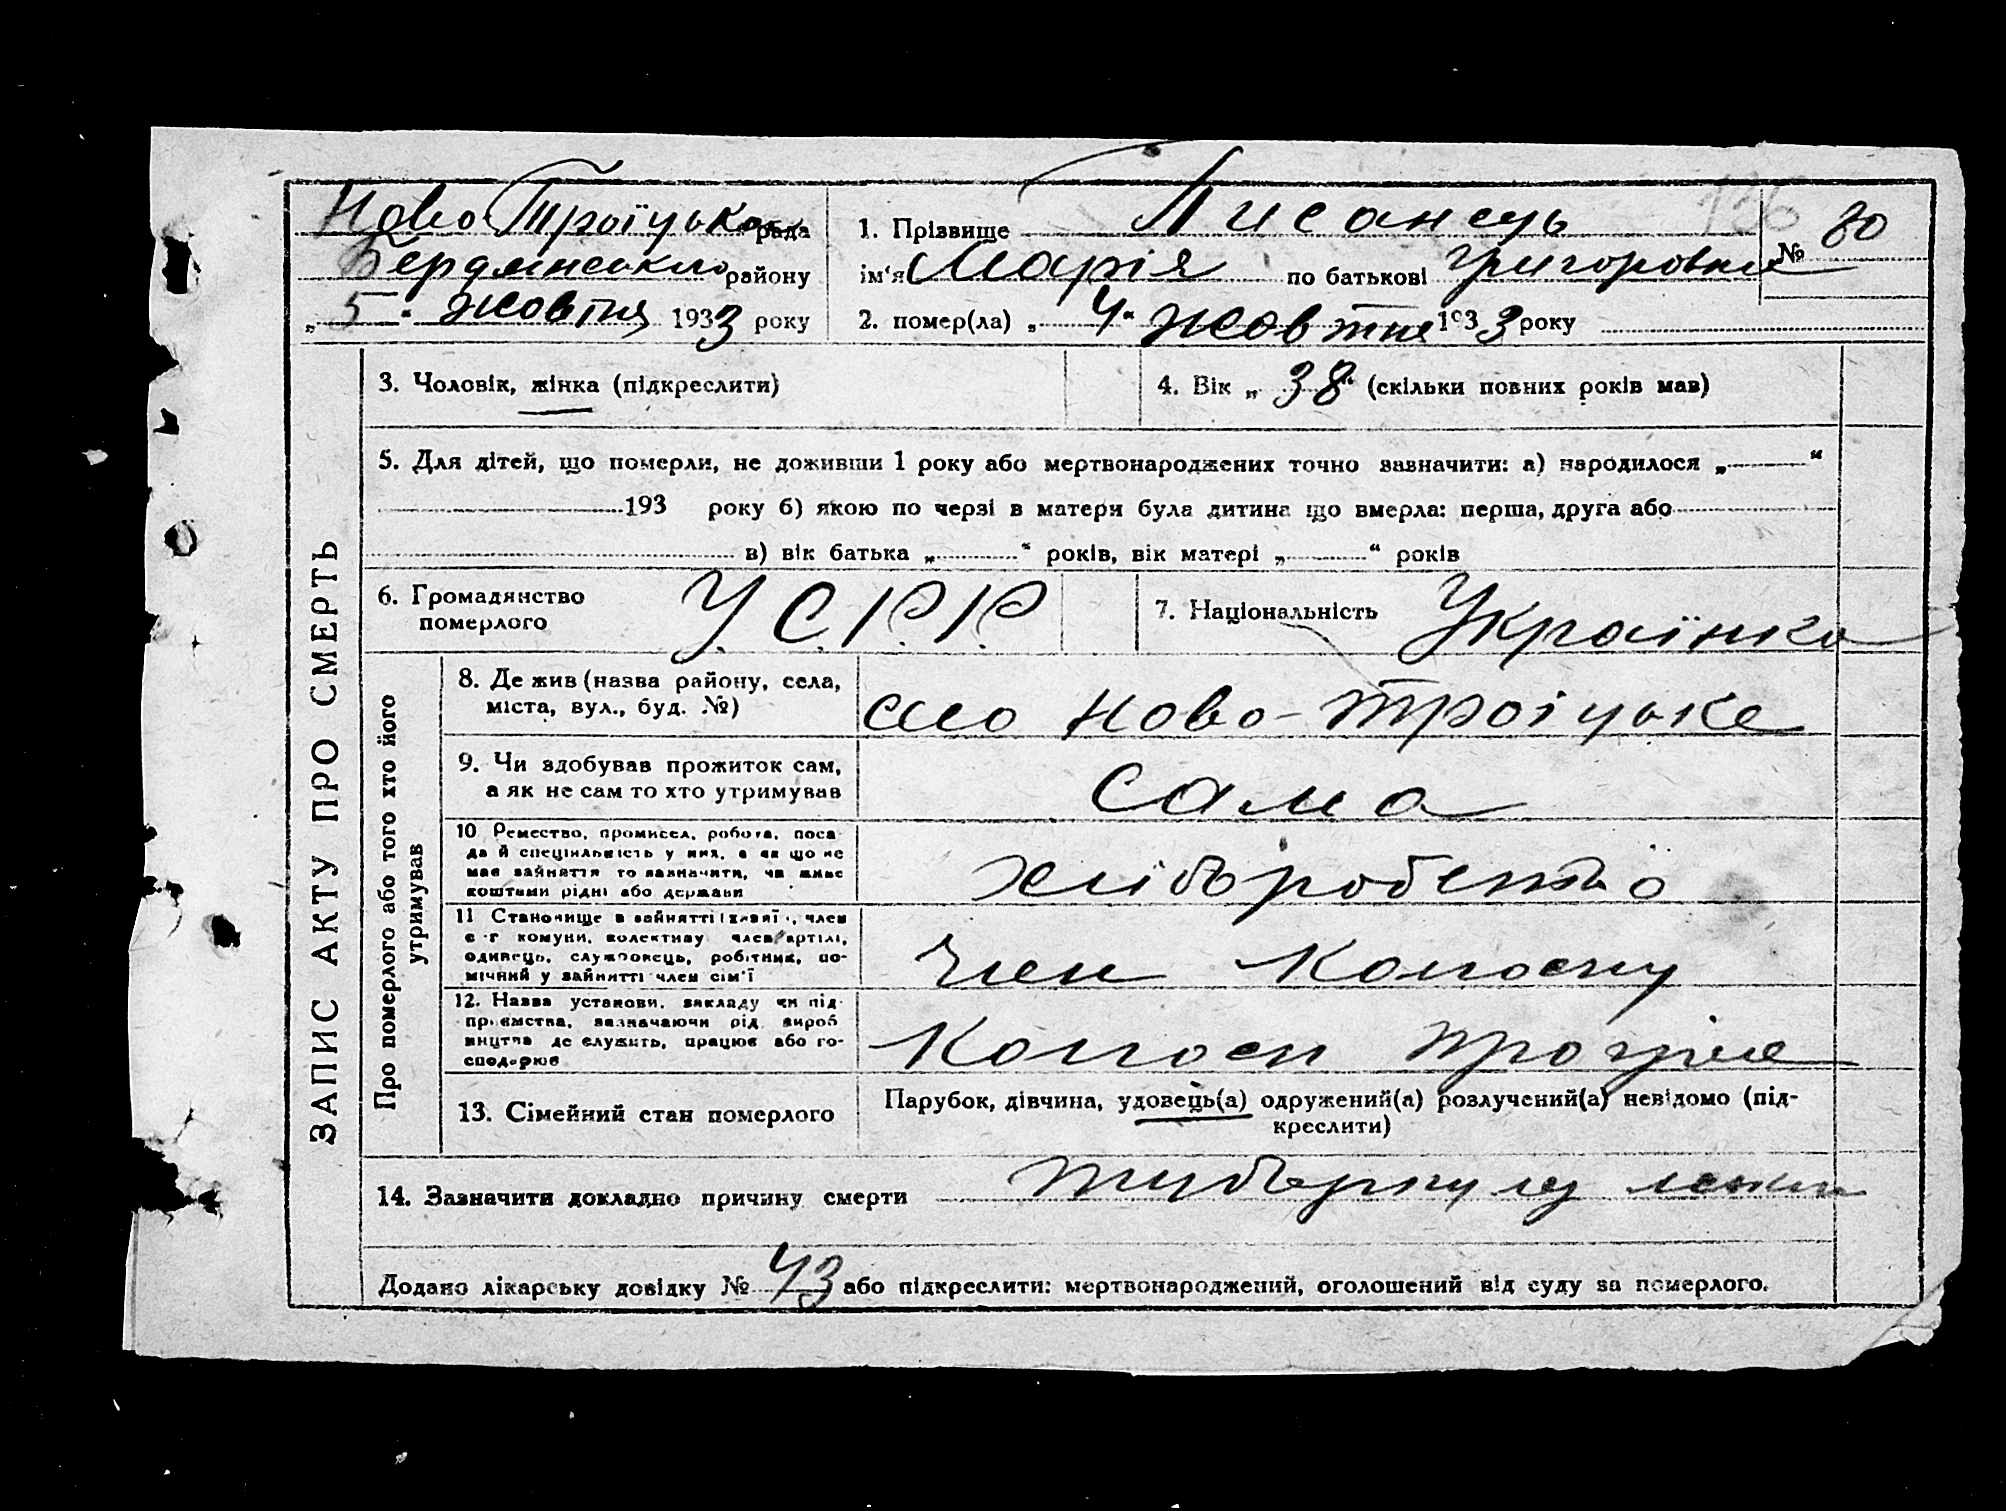 Ново-Троїцька рада
Бердянського району
„5“ жовтня 1933 року
1. Прізвище Писанець
ім'я Марія по батькові Григоровна
№ 80
136
2. помер(ла) „4“ жовтня 1933 року
ЗАПИС АКТУ ПРО СМЕРТЬ
3. Чоловік, жінка (підкреслити)
4. Вік „38“ (скільки повних років мав)
5. Для дітей, що померли, не доживши 1 року або мертвонароджених точно зазначити: а) народилося „ “
193 року б) якою по черзі в матери була дитина що вмерла: перша, друга або
в) вік батька „ “ років, вік матері „ “ років
6. Громадянство
померлого
У.С.Р.Р.
7. Національність Українка
Про померлого або того хто його
утримував
8. Де жив (назва району, села,
міста, вул., буд. №)
село Ново-Троіцьке
9. Чи здобував прожиток сам,
а як не сам то хто утримував
сама
10 Ремество, промисел, робота, поса-
да й спеціяльність у них, а як що не
мав зайняття то зазначити, чи живе
коштами рідні або держави
11 Становище в зайнятті, член
с-г комуни, колективу член артілі,
одинець, службовець, робітник, по-
мічний у зайнятті член сім'ї
член колоспу
12. Назва установи, закладу чи під-
приємства, зазначаючи рід вироб
ництва де служить, працює або го-
сподарює
Колосп
13. Сімейний стан померлого
Парубок, дівчина, удовець(а) одружений(а) розлучений(а) невідомо (під-
креслити)
14. Зазначити докладно причину смерти
Додано лікарську довідку № 43 або підкреслити: мертвонароджений, оголошений від суду за померлого.